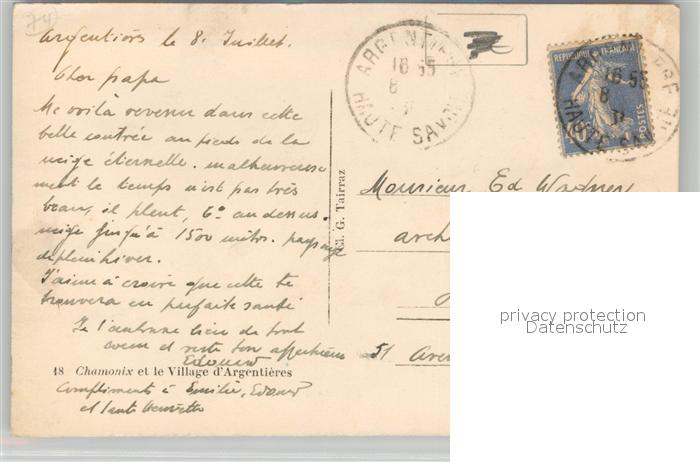 Argentières le 8. Juillet.
Cher papa
Me voilà revenu dans cette
belle contrée au pieds de la
neige éternelle. malheureuse
ment le temps n'est pas très
beau, il pleut, 6° au dessus.
neige jusqu'à 1500 mètres. paysage
de plein hiver.
J'aime à croire que cette te
trouvera en parfaite santé
Je t'embrasse bien de tout
coeur et reste ton affectueux
Edouard
18 Chamonix et le Village d'Argentières
Compliments à Emilie, Edouard
et tante
Cl. G. Tairraz
ARGENTIERE
16 55
8
HAUTE SAVOIE
REPUBLIQUE FRANCAISE
POSTES
16 55
8
Monsieur Ed
arch
51 Aven
privacy protection
Datenschutz